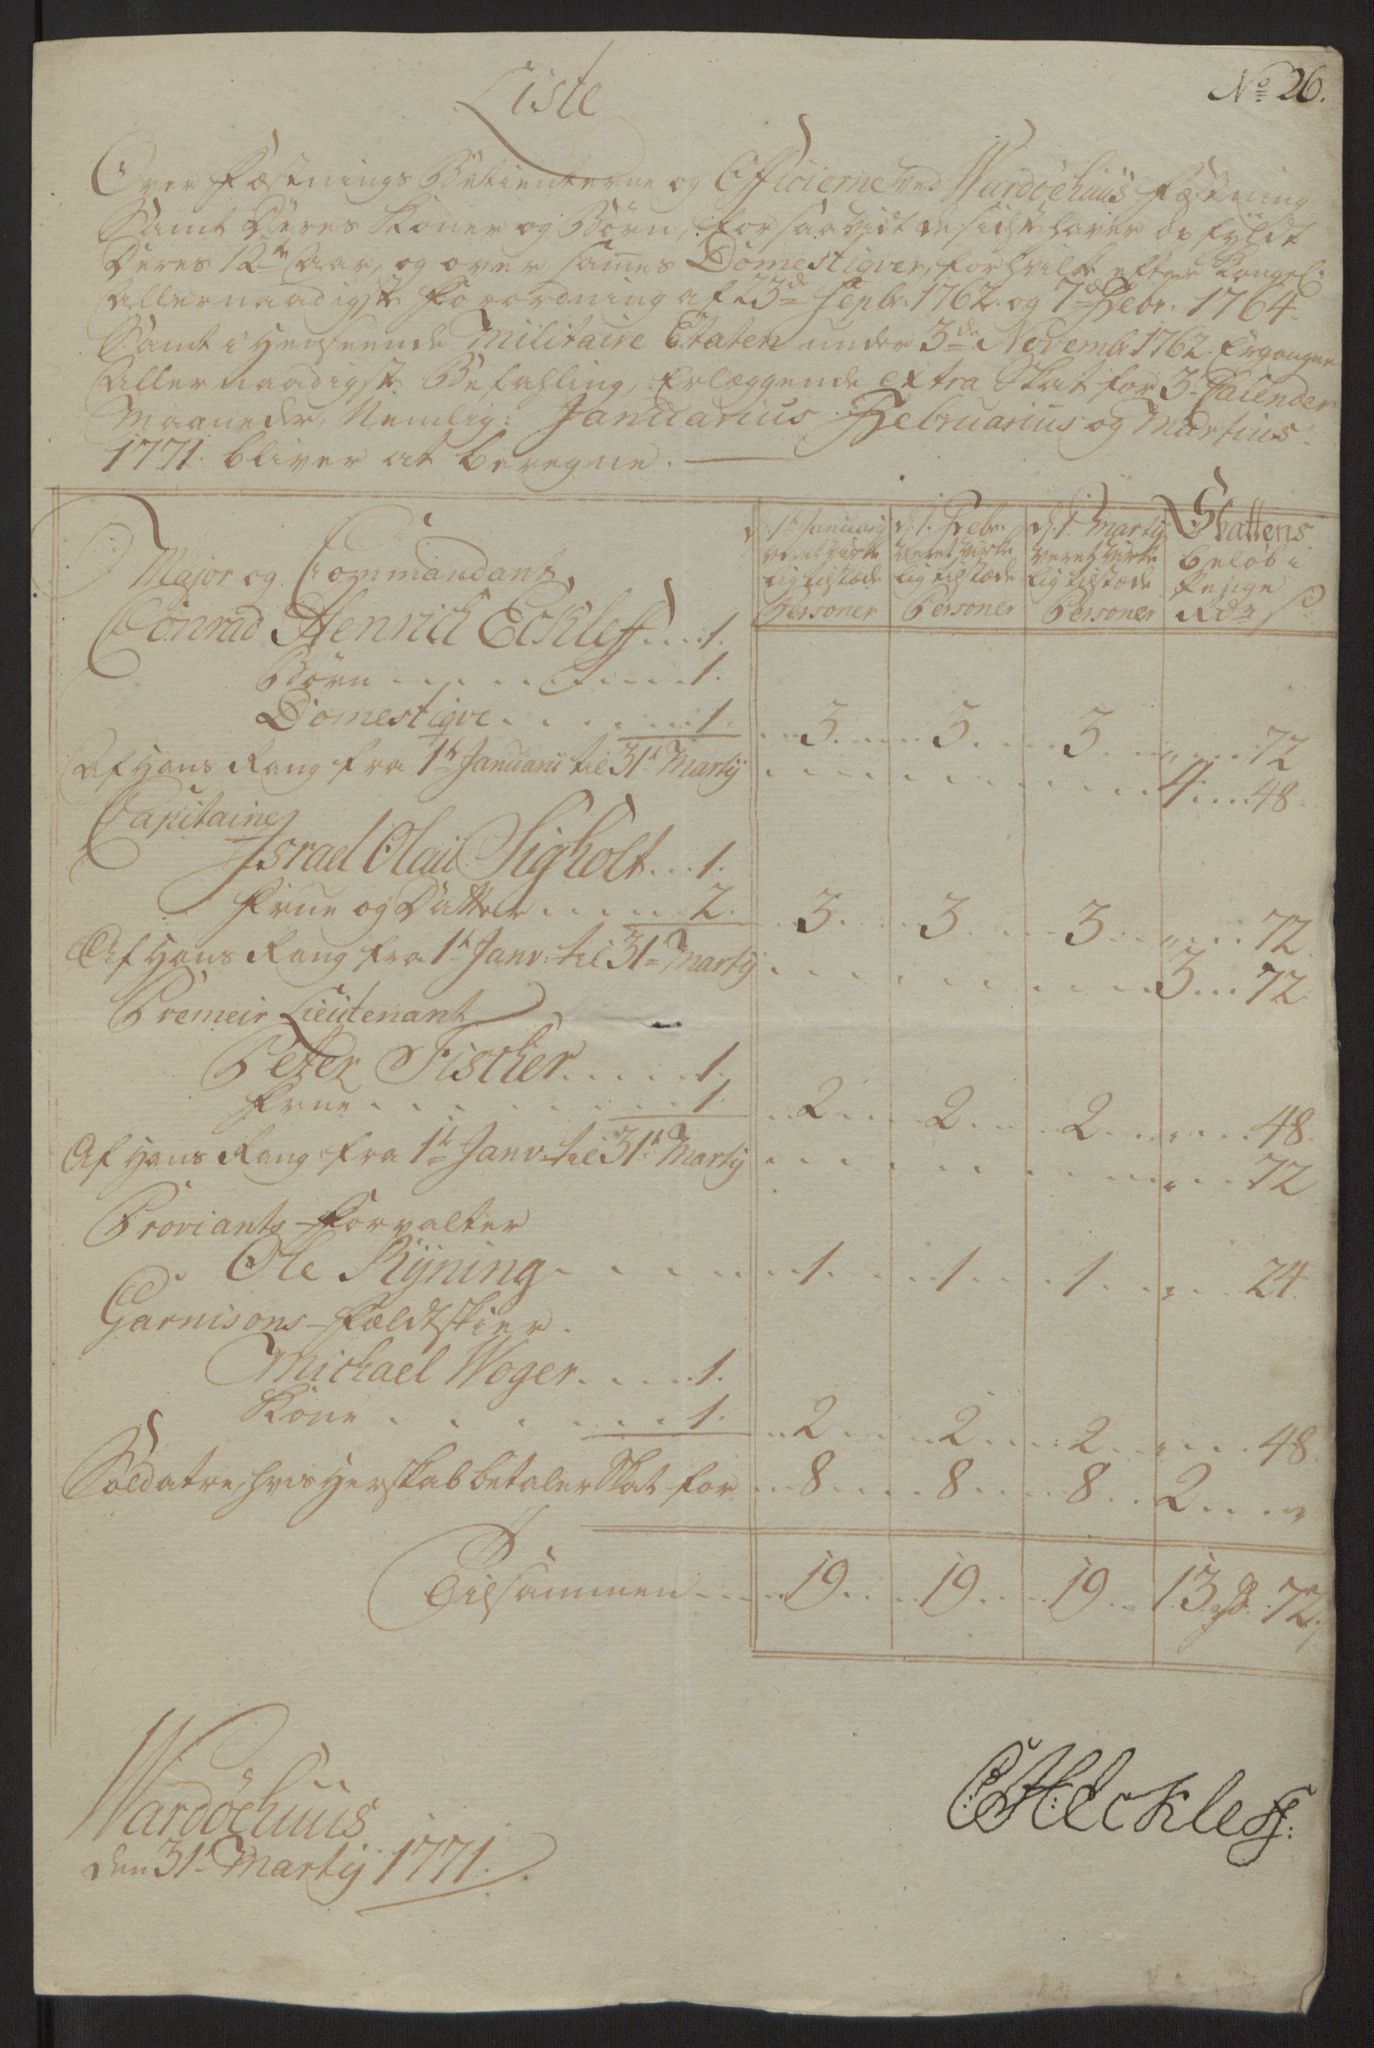 No 26.
Liste
Over Fæstnings Betienterne og Officierne ved Wardøehuus Fæstning
Samt Deres Koner og Børn, forsaavidt de sidste haver opfyldt
Deres 12te Aar, og over sames Domestiqver, for hvilke efter Kongel:
Allernaadigste Forordning af 23de Sepbr: 1762. og 7de Febr. 1764.
Samt i Henseende Militaire Etaten under 3de Novembr 1762. Ergangne
Allernaadigste Befahling, Erlæggende Extra Skat for 3. Calender
Maaneder, Nemlig: Januarius Februarius og Martius
1771. bliver at beregne.
d. 1te Januarij d. 1. Febr. d. 1. Martij Skattens
Veret virke Veret virke Veret virke beløb i
lig tilstæde lig tilstæde lig tilstæde Penge
Personer Personer Personer Rdr s
Major og Commandant
Conrad Henrich Eckleff 1.
Børn 1.
Domestiqve 1. 3. 3. 3. " 72
Af Hans Rang fra 1te Januarii til 31te Martij 4. 48
Capitaine
Israel Olaii Sigholt 1.
Frue og Datter 2. 3. 3. 3. " 72.
Af Hans Rang fra 1te Janv: til 31te Martij 3. 72
Premeir Lieutenant
Peter Fischer 1.
Frue 1. 2. 2. 2. " 48.
Af Hans Rang fra 1te Janv: til 31te Martij " 72
Proviants-Forvalter
Ole Ryning 1. 1. 1. " 24.
Garnisons-Fældtskier.
Michael Woger 1.
Kone 1. 2. 2. 2. " 48.
Soldatre, hvis Herskab betaler Skat for 8. 8. 8. 2. "
Tilsammen 19. 19. 19. 13 rd. 72 s
Wardöehuus
den 31te Martij 1771.
CHEckleff: